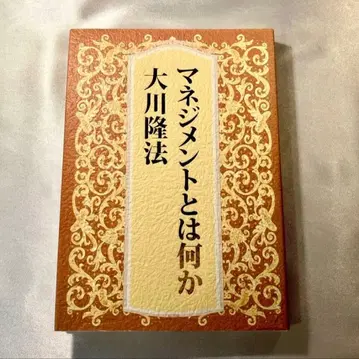 マネジメントとは何か
大川隆法